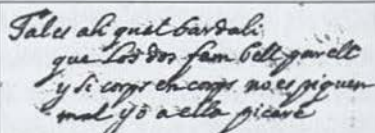 Tal es ali quet bardali
que los dos fam bell parell
y si corps en corps no es piquen
mal yo a ella picaré